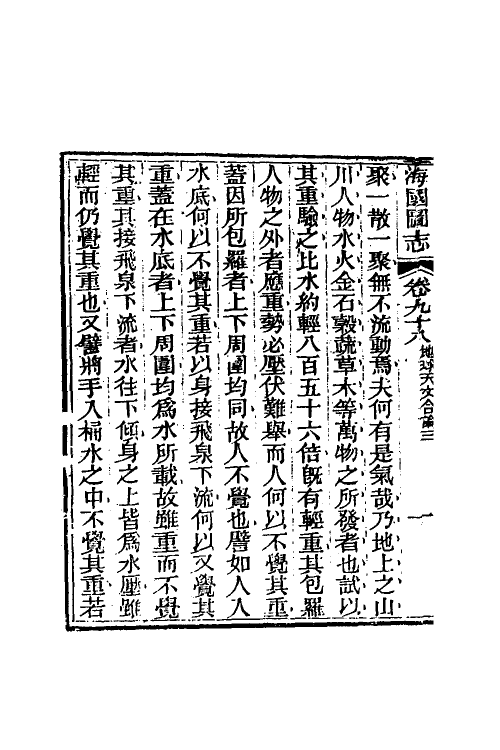 海國圖志　卷九十八　地球天文合論三　一
聚一散一聚無不流動焉夫何有是氣哉乃地上之山
川人物水火金石穀蔬草木等萬物之所發者也試以
其重驗之比水約輕八百五十六倍旣有輕重其包羅
人物之外者應重勢必壓伏難舉而人何以不覺其重
蓋因所包羅者上下周圍均同故人不覺也譬如人入
水底何以不覺其重若以身接飛泉下流何以又覺其
重蓋在水底者上下周圍均爲水所載故雖重而不覺
其重其接飛泉下流者水往下傾身之上皆爲水壓雖
輕而仍覺其重也又譬將手入桶水之中不覺其重若